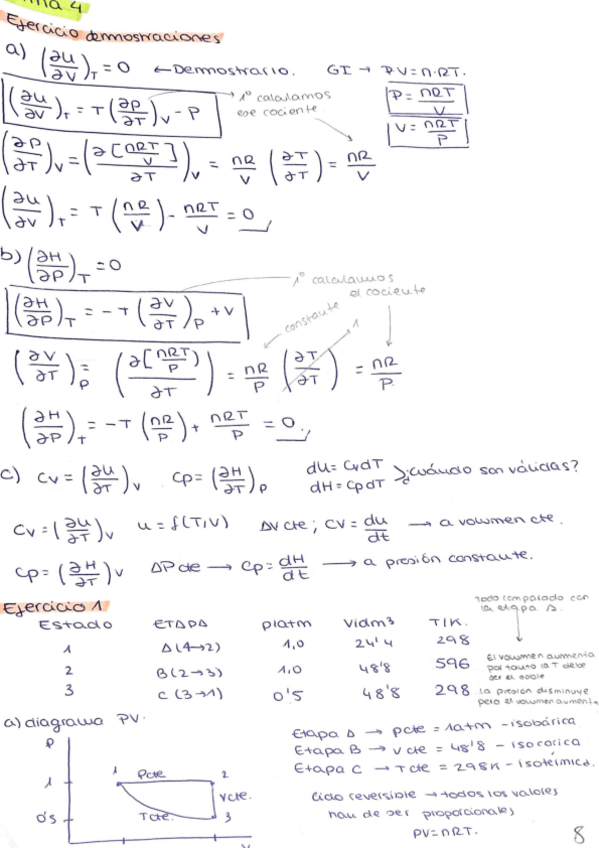 ma 4
Ejercicio demostraciones
a) (∂U/∂V)_T = 0 ← Demostrarlo. GI → PV = n·RT.
(∂U/∂V)_T = T(∂P/∂T)_V - P
1º calculamos ese cociente.
P = nRT/V
V = nRT/P
(∂P/∂T)_V = (∂[nRT/V]/∂T)_V = nR/V (∂T/∂T) = nR/V
(∂U/∂V)_T = T(nR/V) - nRT/V = 0
b) (∂H/∂P)_T = 0
1º calculamos el cociente
(∂H/∂P)_T = -T(∂V/∂T)_P + V
constante
1
(∂V/∂T)_P = (∂[nRT/P]/∂T) = nR/P (∂T/∂T) = nR/P
(∂H/∂P)_T = -T(nR/P) + nRT/P = 0.
c) Cv = (∂U/∂T)_V Cp = (∂H/∂T)_P dU = CvdT dH = CpdT ¿cuándo son válidas?
Cv = (∂U/∂T)_V u = f(T,V) ΔV cte; CV = du/dt → a volumen cte.
Cp = (∂H/∂T)_V ΔP cte → Cp = dH/dt → a presión constante.
Ejercicio 1
Todo comparado con la etapa A.
Estado ETAPA p/atm V/dm³ T/K.
1 A(1→2) 1,0 24'4 298
2 B(2→3) 1,0 48'8 596
3 C(3→1) 0'5 48'8 298
El volumen aumenta
por tanto la T debe
ser el doble
La presión disminuye
pero el volumen aumenta
a) diagrama PV.
Etapa A → pcte = 1atm - isobárica
Etapa B → vcte = 48'8 - isocórica
Etapa C → Tcte = 298K - isotérmica.
Ciclo reversible → todos los valores
han de ser proporcionales
PV = nRT.
P
1
0'5
1 Pcte. 2
Vcte.
Tcte. 3
V
8